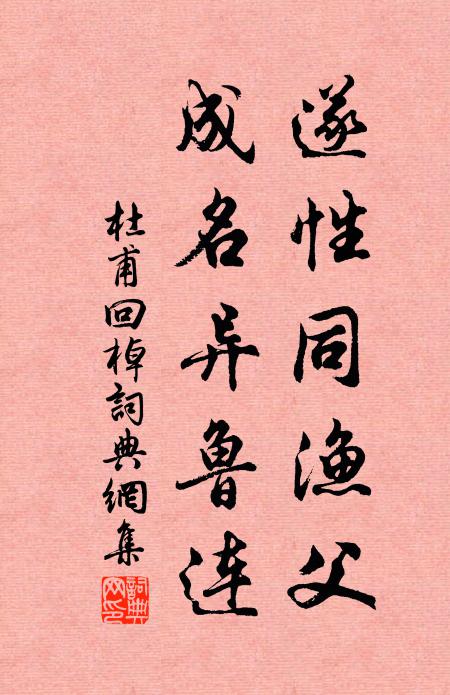 遂性同渔父
成名异鲁连
杜甫回棹詞典網集
詞典网印